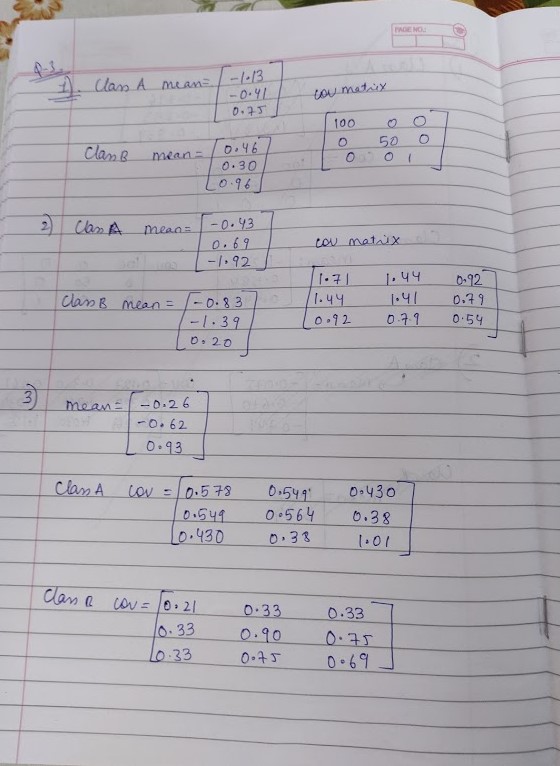 PAGE NO.:
Q-3
1). Class A mean = [-1.13
-0.41
0.75] cov matrix
[100 0 0
0 50 0
0 0 1]
Class B mean = [0.46
0.30
0.96]
2) Class A mean = [-0.43
0.69
-1.92] cov matrix
[1.71 1.44 0.92
1.44 1.41 0.79
0.92 0.79 0.54]
Class B mean = [-0.83
-1.39
0.20]
3) mean = [-0.26
-0.62
0.93]
Class A cov = [0.578 0.549 0.430
0.549 0.564 0.38
0.430 0.38 1.01]
Class B cov = [0.21 0.33 0.33
0.33 0.90 0.75
0.33 0.75 0.69]